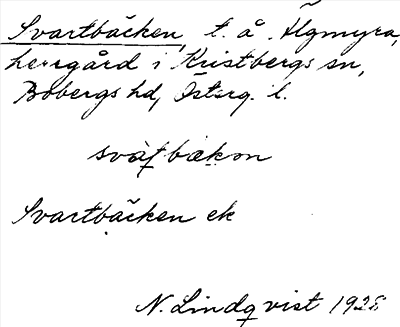 Svartbäcken, t. å. Älgmyra,
herrgård i Kristbergs sn,
Bobergs hd, Österg. l.
svat̠bækon
Svartbäcken ek
N. Lindqvist 1928